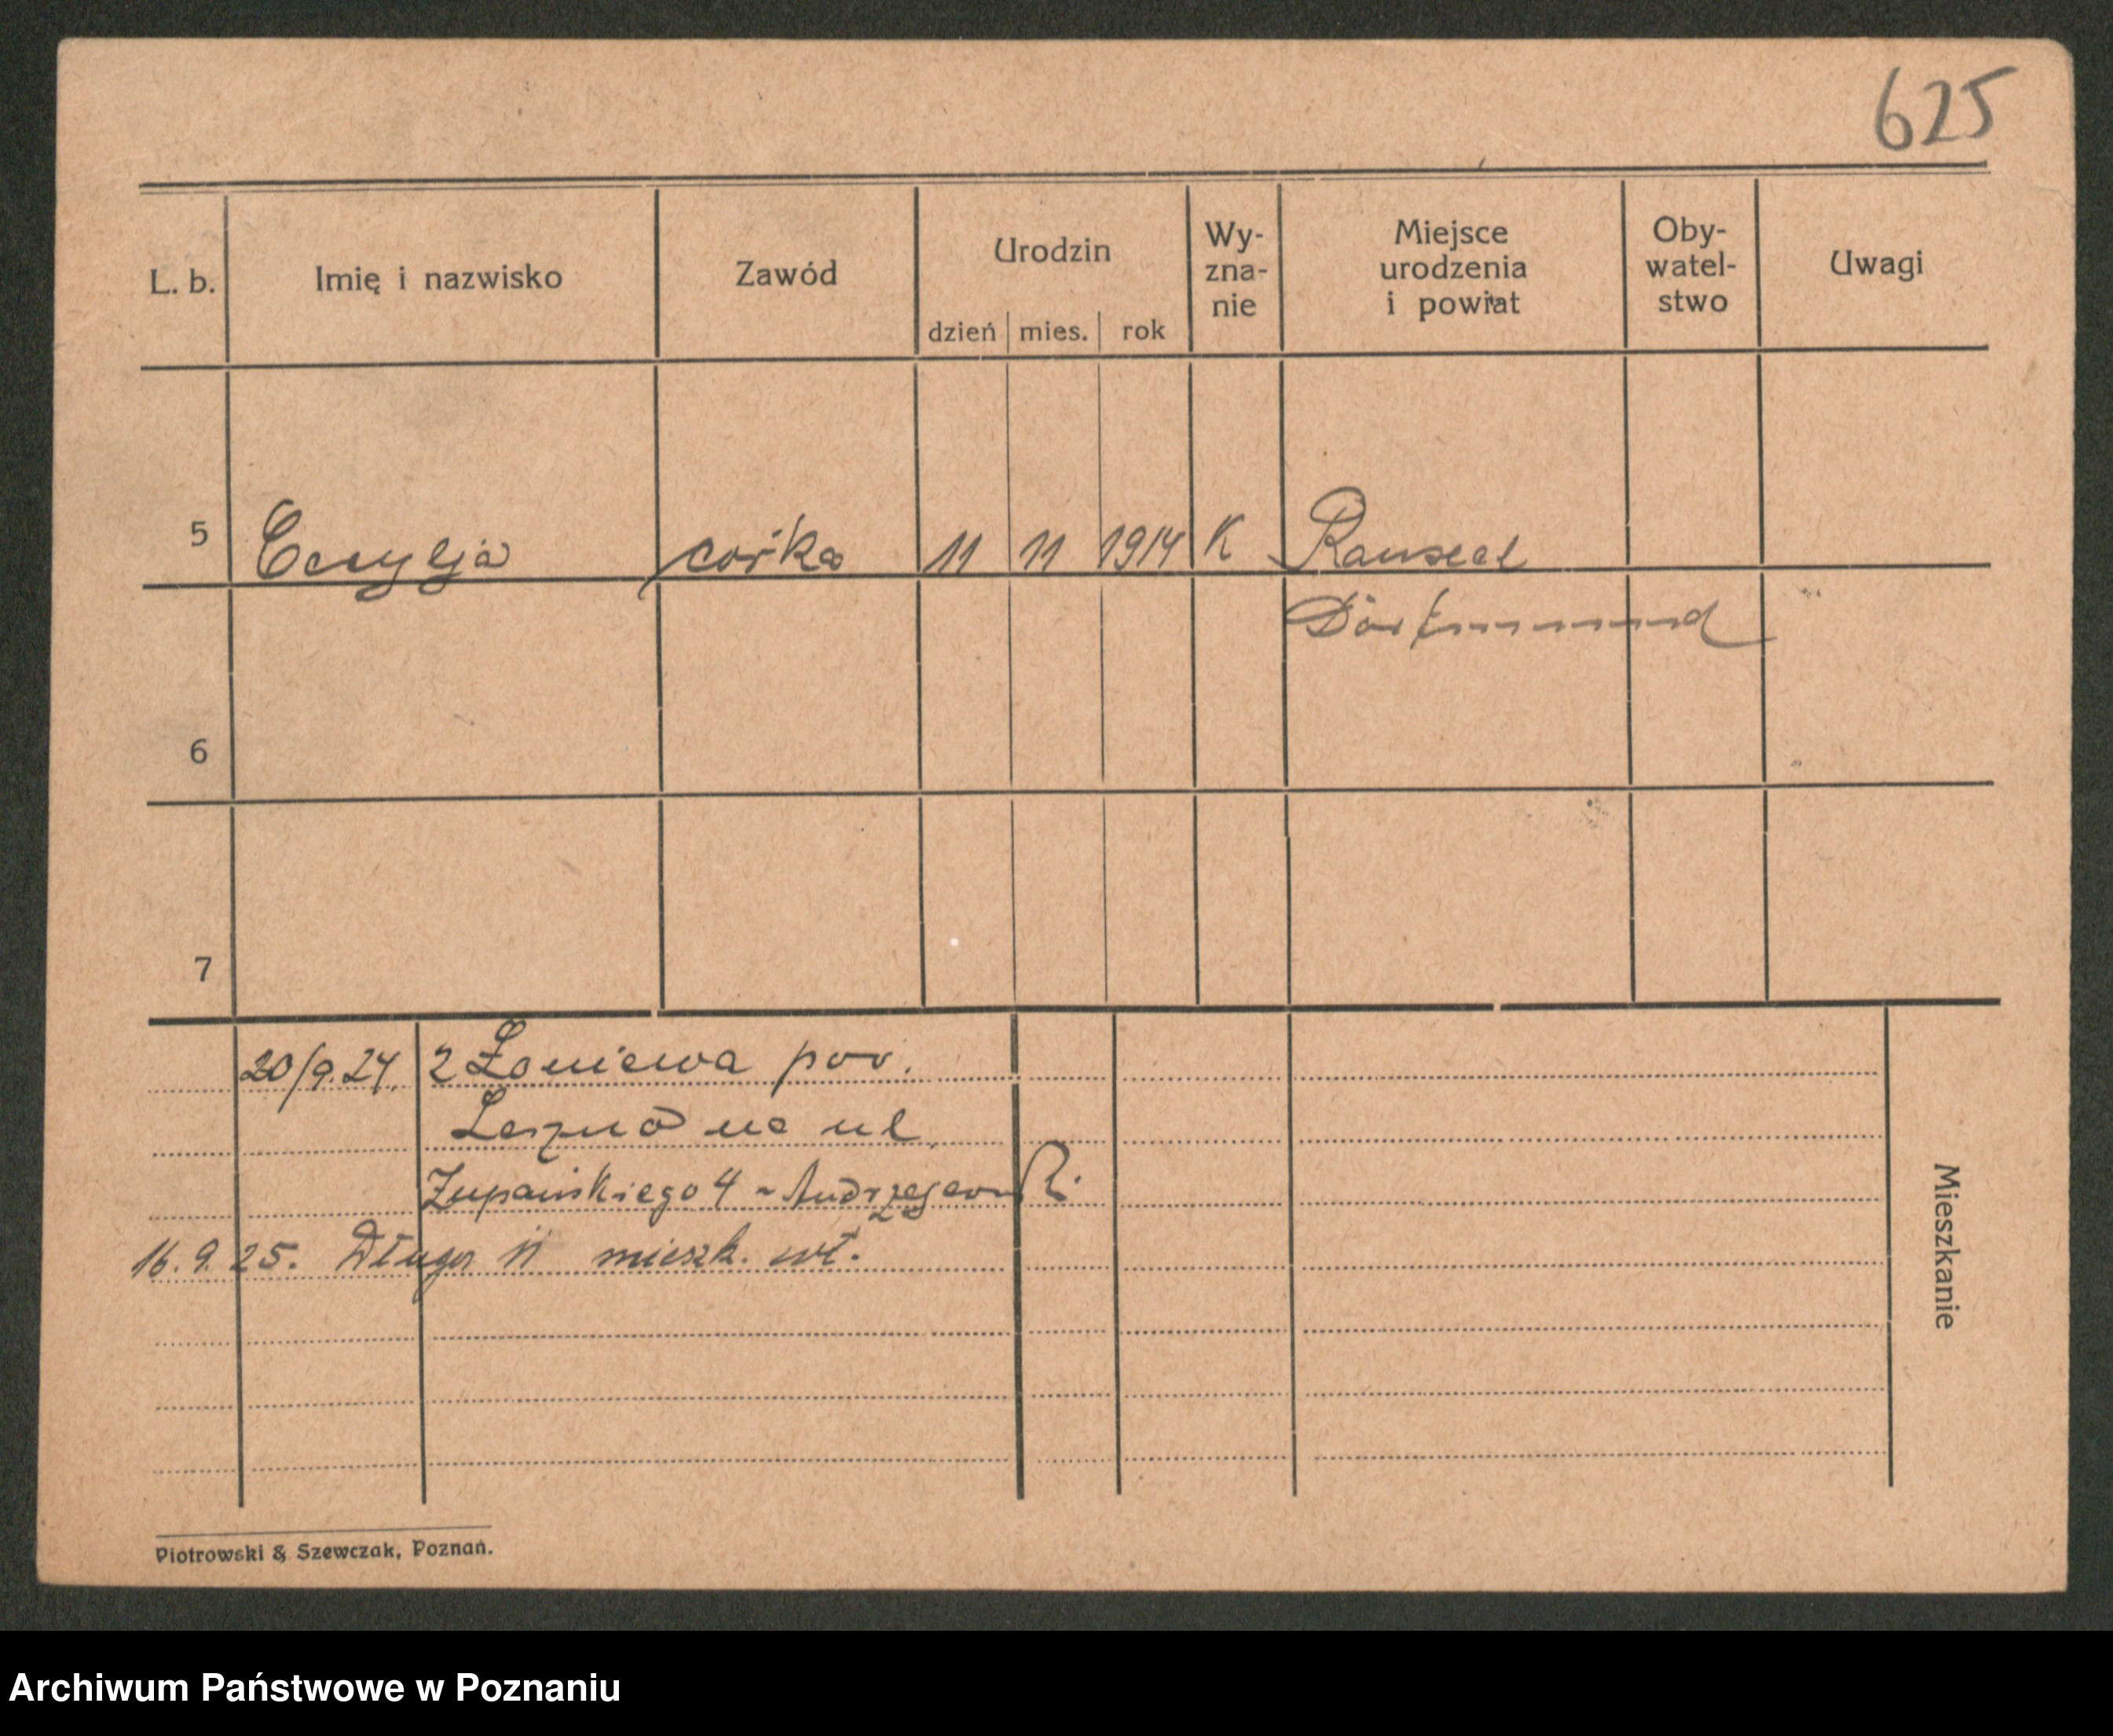 625
L. b. Imię i nazwisko Zawód Urodzin dzień mies. rok Wy-zna-nie Miejsce urodzenia i powiat Oby-watel-stwo Uwagi
5 Cecylja córka 11 11 1914 K Rauxeel
Dortmuund
6
7
20/9.24 z pow.
Leszno na ul.
Żupańskiego 4 -
16.9.25. Długa 11 mieszk. wł.
Mieszkanie
Piotrowski & Szewczak, Poznań.
Archiwum Państwowe w Poznaniu